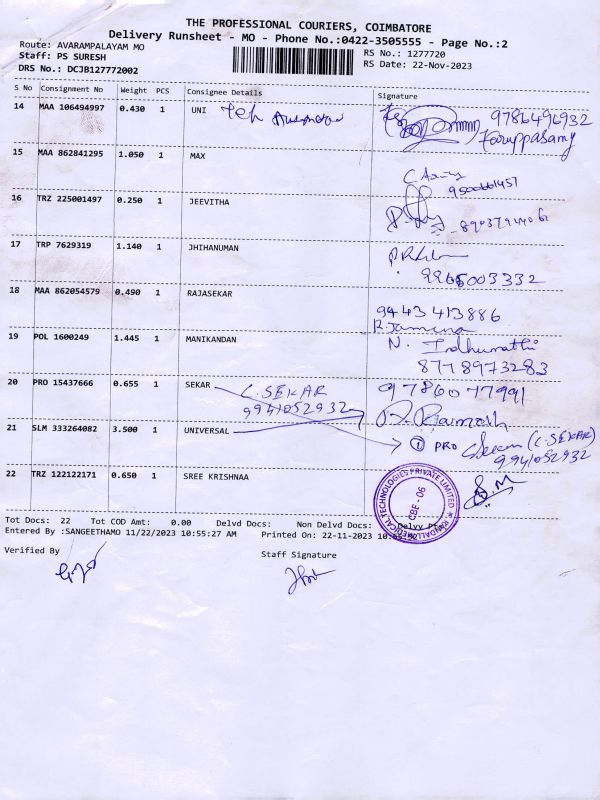 THE PROFESSIONAL COURIERS, COIMBATORE
Delivery Runsheet - MO - Phone No.:0422-3505555 - Page No.:2
Route: AVARAMPALAYAM MO
RS No.: 1277720
Staff: PS SURESH
RS Date: 22-Nov-2023
DRS No.: DCJB127772002
S No Consignment No Weight PCS Consignee Details Signature
14 MAA 106494997 0.430 1 UNI Teh
9786496932
Karuppasamy
15 MAA 862841295 1.050 1 MAX
16 TRZ 225001497 0.250 1 JEEVITHA
17 TRP 7629319 1.140 1 JHIHANUMAN
9865003332
18 MAA 862054579 0.490 1 RAJASEKAR
9443413886
R. Jamuna
19 POL 1600249 1.445 1 MANIKANDAN N. Indhumathi
8778973283
20 PRO 15437666 0.655 1 SEKAR C. SEKAR 9786077991
9941052932 R. Ramesh
21 SLM 333264082 3.500 1 UNIVERSAL
① PRO (C. SEKAR)
9941052932
22 TRZ 122122171 0.650 1 SREE KRISHNAA S.M
MEDICAL TECHNOLOGIES PRIVATE LIMITED
CBE - 06
Tot Docs: 22 Tot COD Amt: 0.00 Delvd Docs: Non Delvd Docs: Delvy
Entered By :SANGEETHAMO 11/22/2023 10:55:27 AM Printed On: 22-11-2023
Verified By
Staff Signature